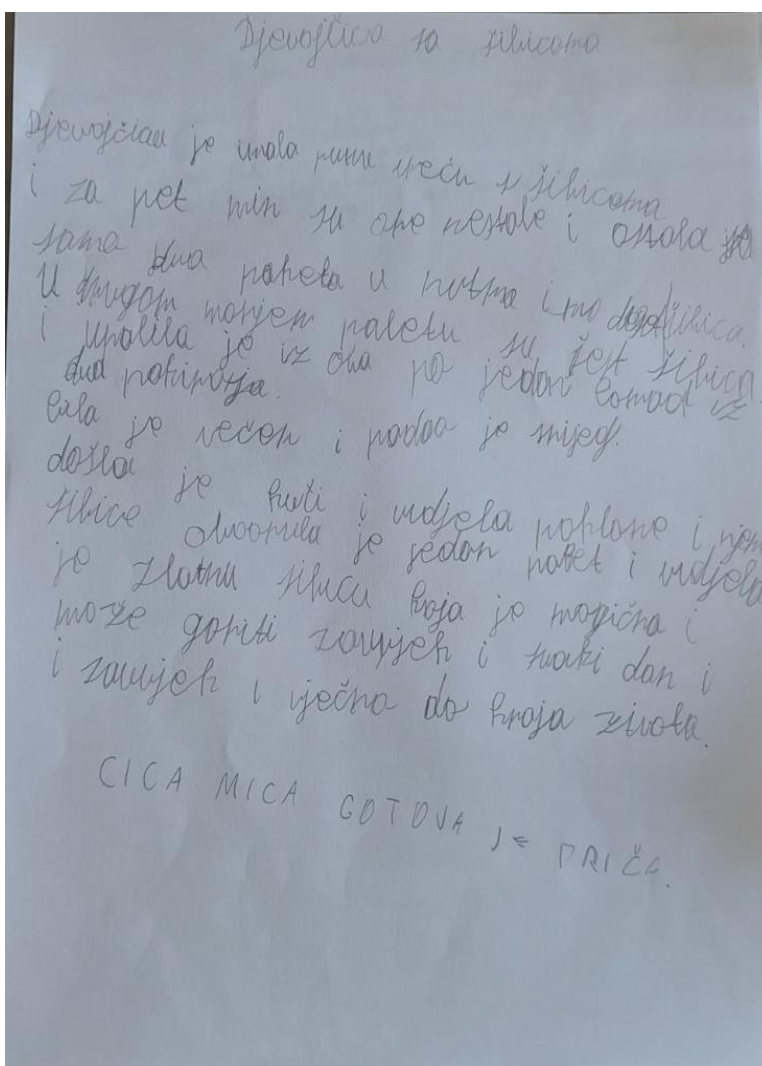 Djevojčica sa šibicama
Djevojčica je imala punu vreću s šibicama
i za pet min su one nestale i ostala
samo dva paketa u i šibica.
U drugom manjem paketu su šest šibica
i upalila je iz oba po jedan komad iz
dva
bila je večer i padao je snijeg.
došla je kući i vidjela poklone i
šibice otvorila je jedan paket i vidjela
je zlatnu šibicu koja je magična i
može goriti zauvjek i svaki dan i
i zauvjek i vječno do kraja života.
CICA MICA GOTOVA JE PRIČA.